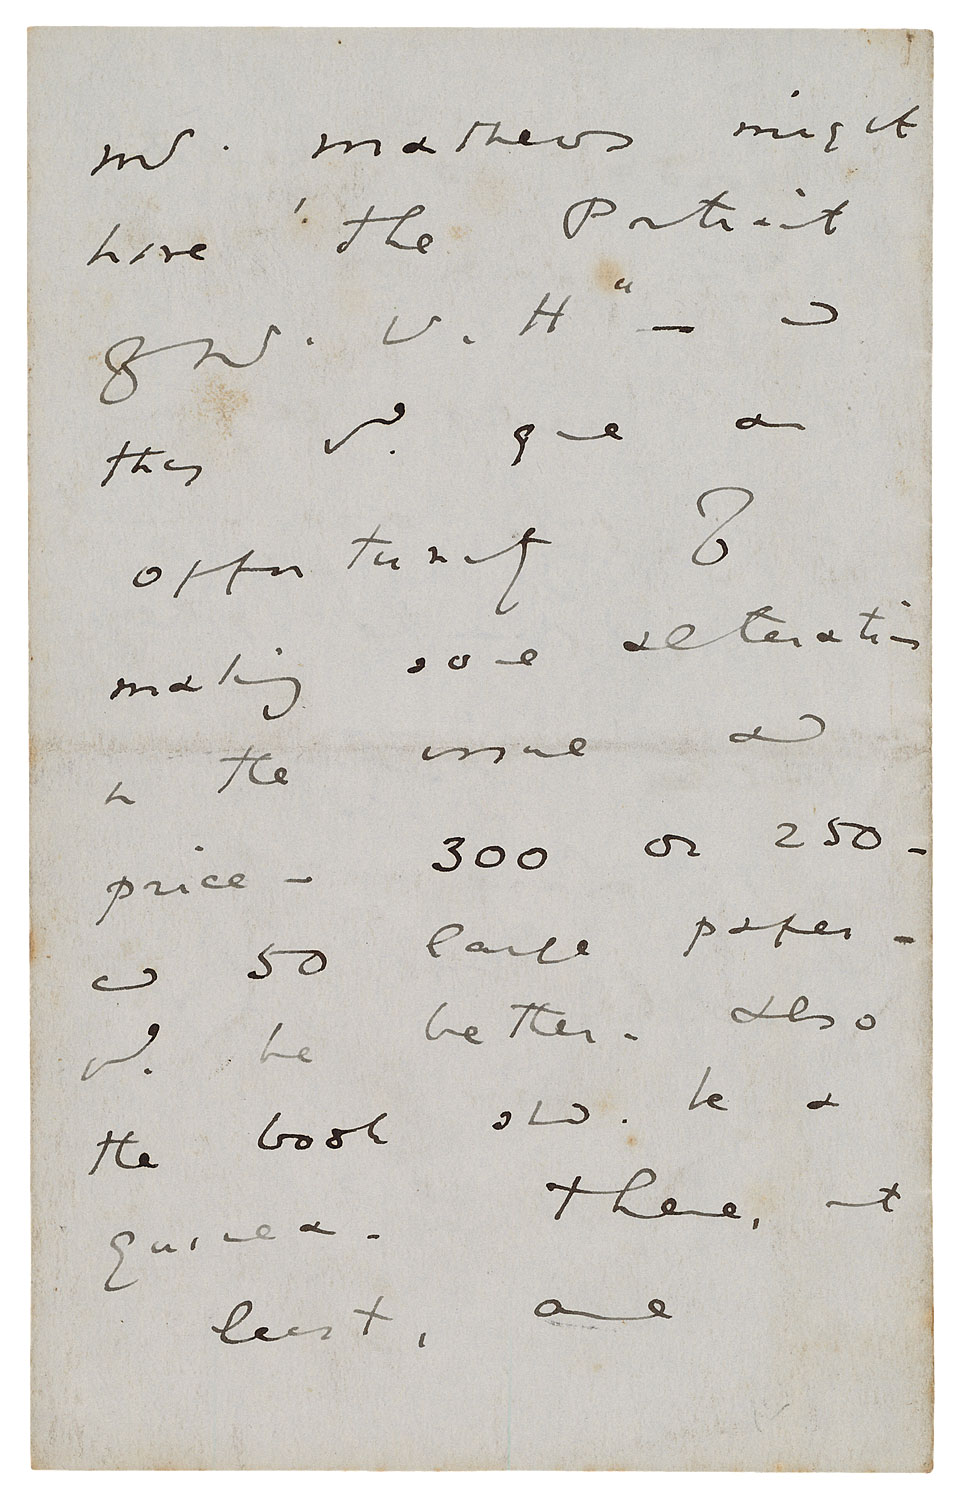 Mr. Mathews might
have 'the Portrait
of Mr. W. H" — and
this wd. give an
opportunity of
making some alteration
in the issue and
price — 300 or 250 —
and 50 large paper —
wd. be better. Also
the book shd. be a
guinea. These, at
least, are